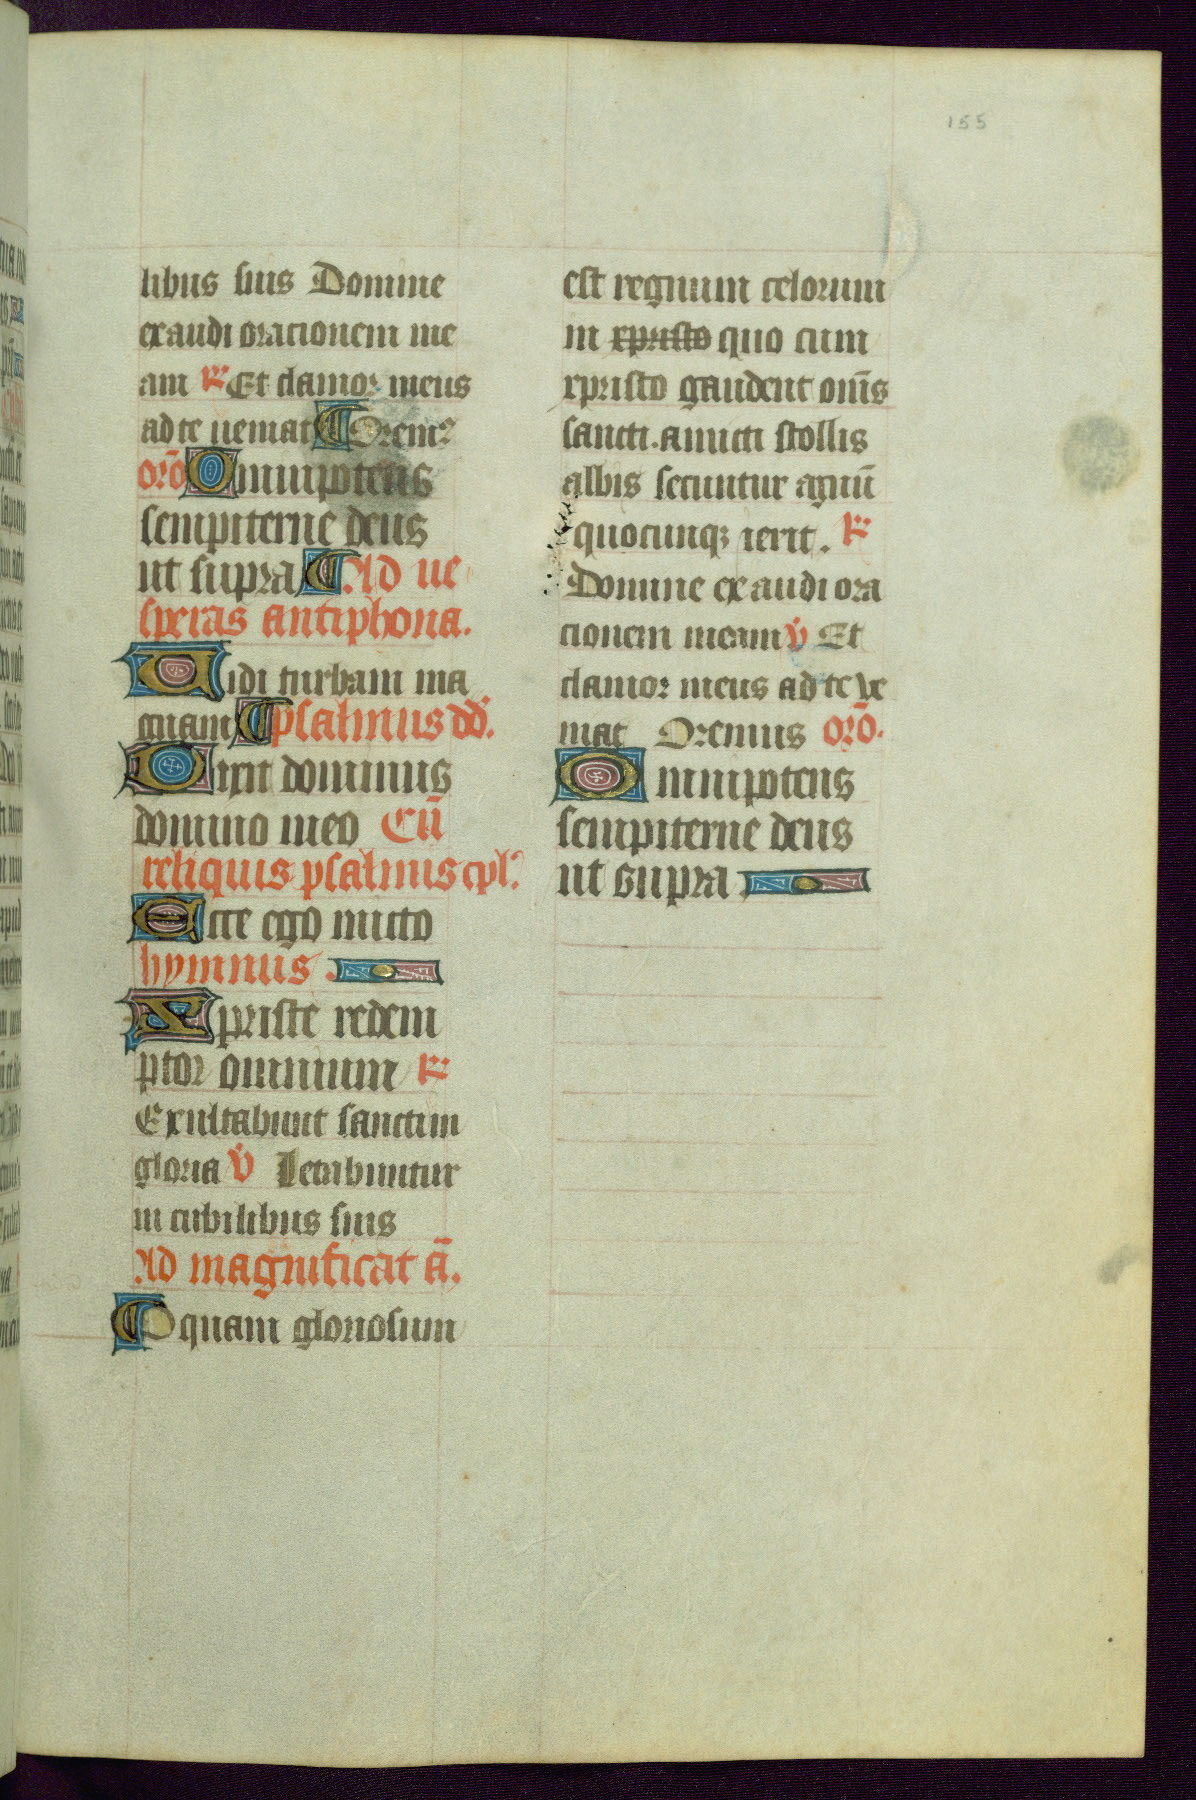 155
libus suis Domine
exaudi oracionem me
am R Et clamor meus
ad te ueniat Orem⁹
orō Omnipotens
sempiterne deus
ut supra Ad ue
speras antiphona.
Uidi turbam ma
gnam psalmus dd̄.
Dixit dominus
domino meo Cū
reliquis psalmis cpl.
Ecce ego mitto
hymnus .
Xpriste redem
ptor omnium R
Exultabunt sancti in
gloria v̇ Letabuntur
in cubilibus suis
Ad magnificat ā.
O quam gloriosum
est regnum celorum
in xpristo quo cum
xpristo gaudent om̄s
sancti. amicti stollis
albis secuntur agnū
quocunqꝫ ierit. R
Domine exaudi ora
cionem meam v̇ Et
clamor meus ad te ve
niat Oremus orō.
Omnipotens
sempiterne deus
ut supra